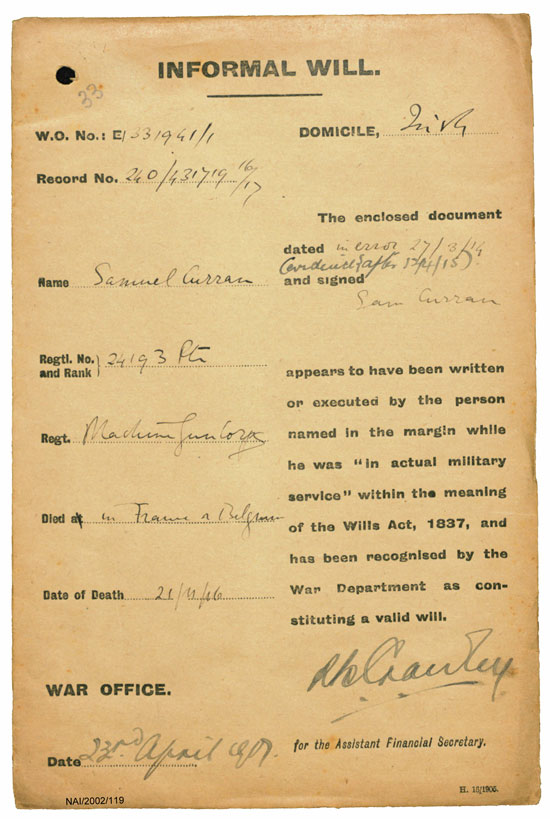 INFORMAL WILL.
33
W.O. No.: E/331941/1
DOMICILE, Irish
Record No. 240/431719 16/17
The enclosed document
dated in error 27/3/14
(evidently after
and signed
Name Samuel Curran
Sam Curran
Regtl. No. and Rank } 24193 Pte
appears to have been written
or executed by the person
Regt. Machine Gun Corps
named in the margin while
he was "in actual military
service" within the meaning
Died at in France or Belgium
of the Wills Act, 1837, and
has been recognised by the
War Department as con-
Date of Death
stituting a valid will.
WAR OFFICE.
for the Assistant Financial Secretary.
Date 23rd April 1917.
H. 16/1905.
NAI/2002/119